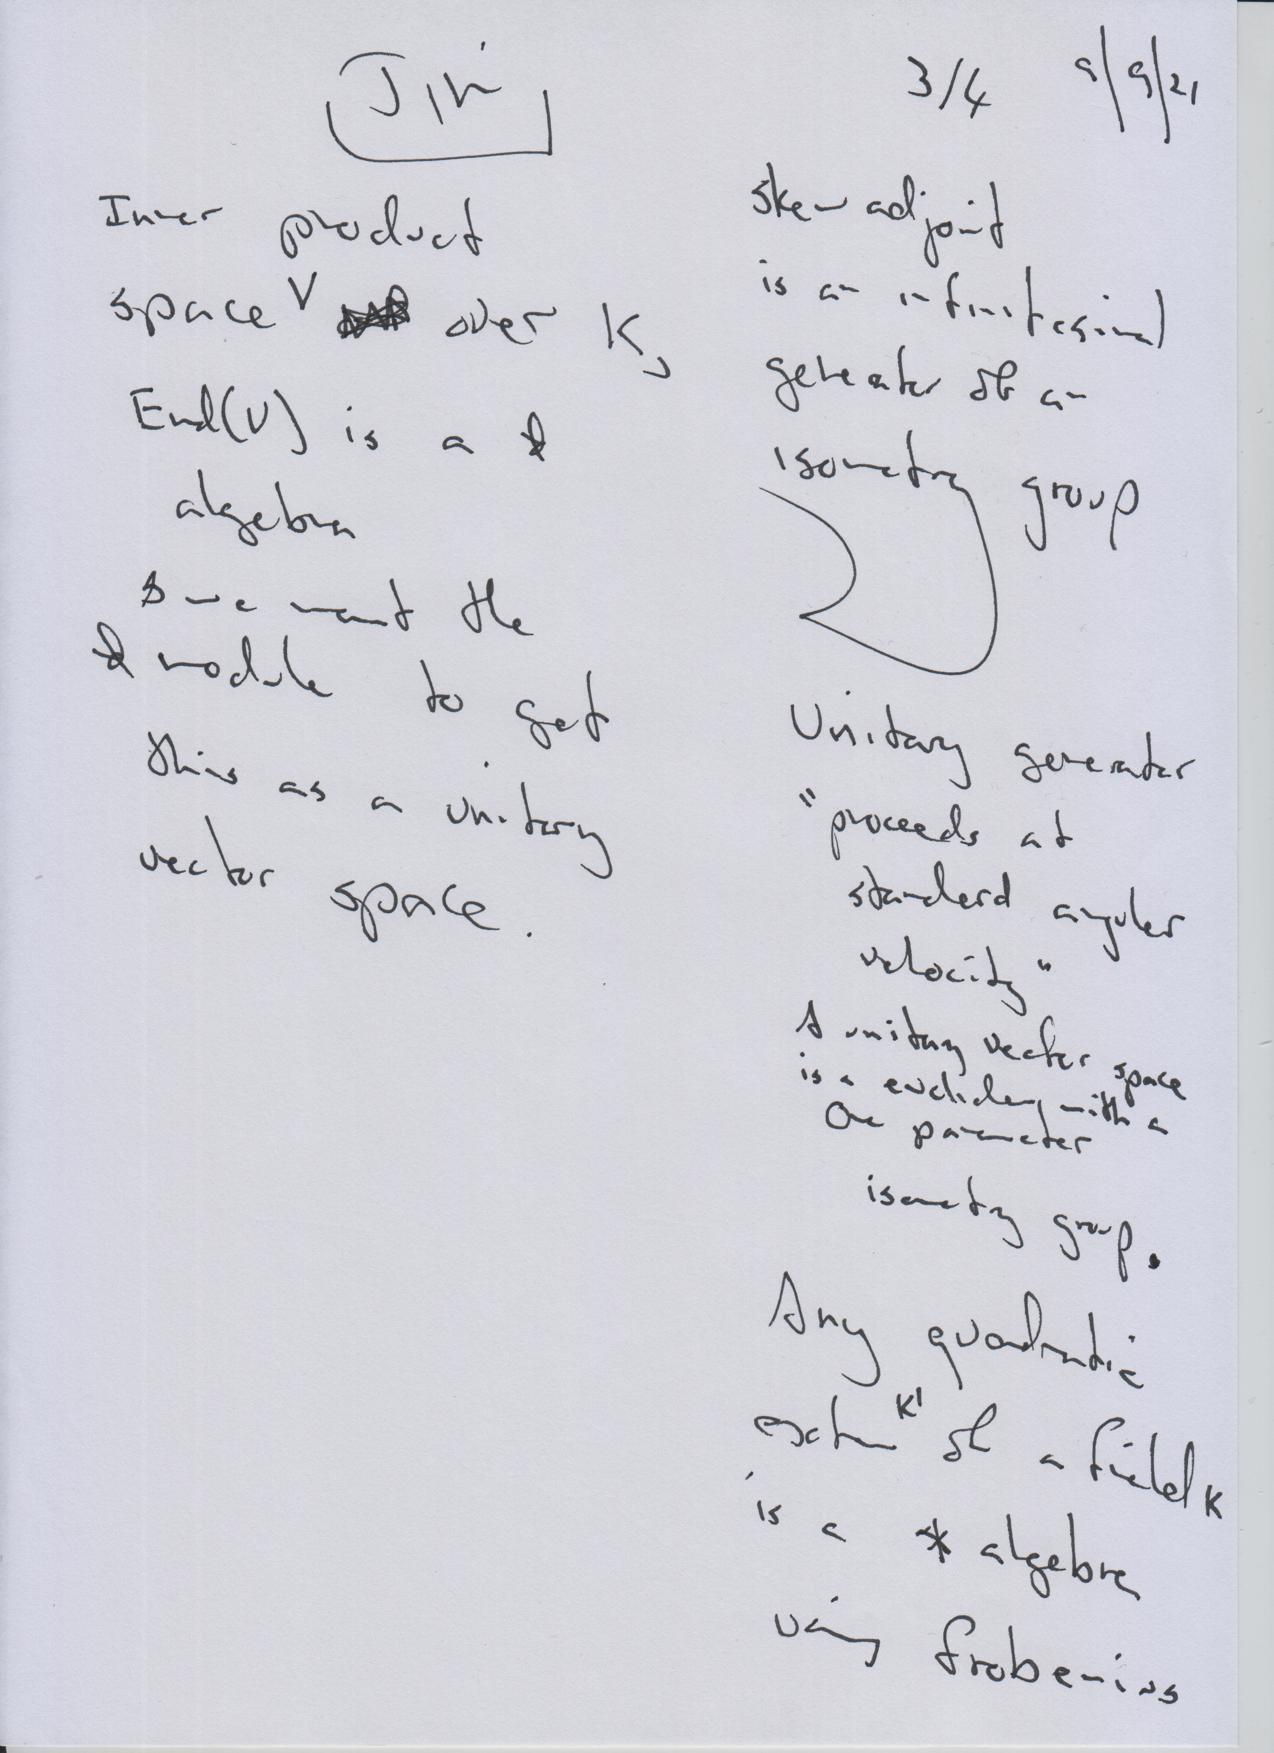 Jim
3/4 9/9/21
Inner product
space V over K,
End(V) is a *
algebra
& we want the
* module to get
this as a unitary
vector space.
Skew adjoint
is an infinitesimal
generator of an
isometry group
Unitary generator
"proceeds at
standard angular
velocity"
A unitary vector space
is a euclidean with a
One parameter
isometry group.
Any quadratic
extn K' of a field K
is a * algebra
using frobenius